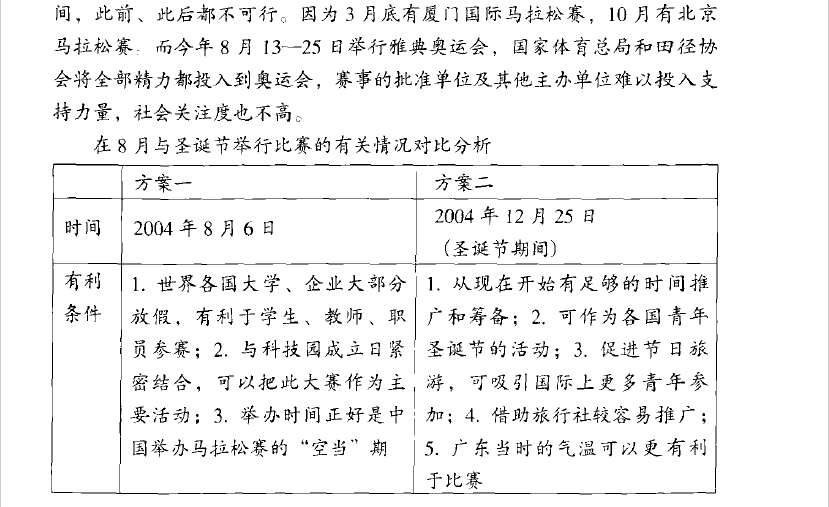 间，此前、此后都不可行。因为3月底有厦门国际马拉松赛，10月有北京
马拉松赣. 而今年8月13—25日举行雅典奥运会，国家体育总局和田径协
会将全部精力都投入到奥运会，赛事的批准单位及其他主办单位难以投入支
持力量，社会关注度也不高。
在8月与圣诞节举行比赛的有关情况对比分析
方案一
方案二
时间
2004年8月6日
2004年12月25日
（圣诞节期间）
有利
条件
1. 世界各国大学、企业大部分
放假，有利于学生、教师、职
员参赛；2. 与科技园成立日紧
密结合，可以把此大赛作为主
要活动；3. 举办时间正好是中
国举办马拉松赛的“空当”期
1. 从现在开始有足够的时间推
广和筹备；2. 可作为各国青年
圣诞节的活动；3. 促进节日旅
游，可吸引国际上更多青年参
加；4. 借助旅行社较容易推广；
5. 广东当时的气温可以更有利
于比赛